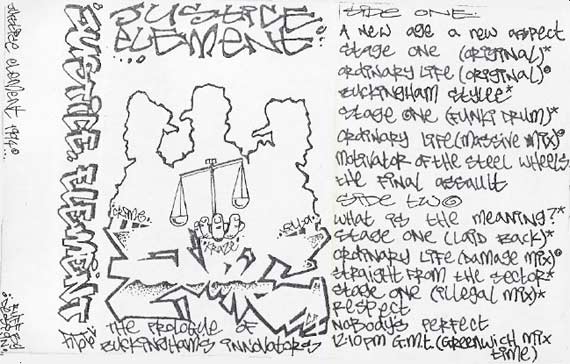 JUSTICE ELEMENT 1990
JUSTICE. ELEMENT
JUSTICE
ELEMENT
THE PROLOGUE OF
BUCKINGHAMS INNOVATORS
SIDE ONE
A NEW AGE A NEW ASPECT
STAGE ONE (ORIGINAL)*
ORDINARY LIFE (ORIGINAL)°
BUCKINGHAM STYLEE*
STAGE ONE (FUNKI DRUM)*
ORDINARY LIFE (MASSIVE MIX)°
MOTIVATOR OF THE STEEL WHEELS.
THE FINAL ASSAULT
SIDE TWO
WHAT IS THE MEANING?*
STAGE ONE (LAID BACK)*
ORDINARY LIFE (DAMAGE MIX)°
STRAIGHT FROM THE SECTOR*
STAGE ONE (ILLEGAL MIX)*
RESPECT
NOBODYS PERFECT
12:10PM G.M.T. (GREENWICH MIX
TIME)